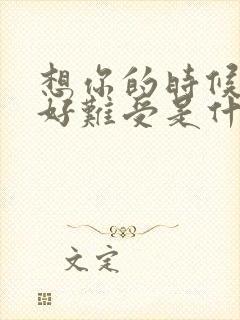 想你的時候
好難受是什
文定